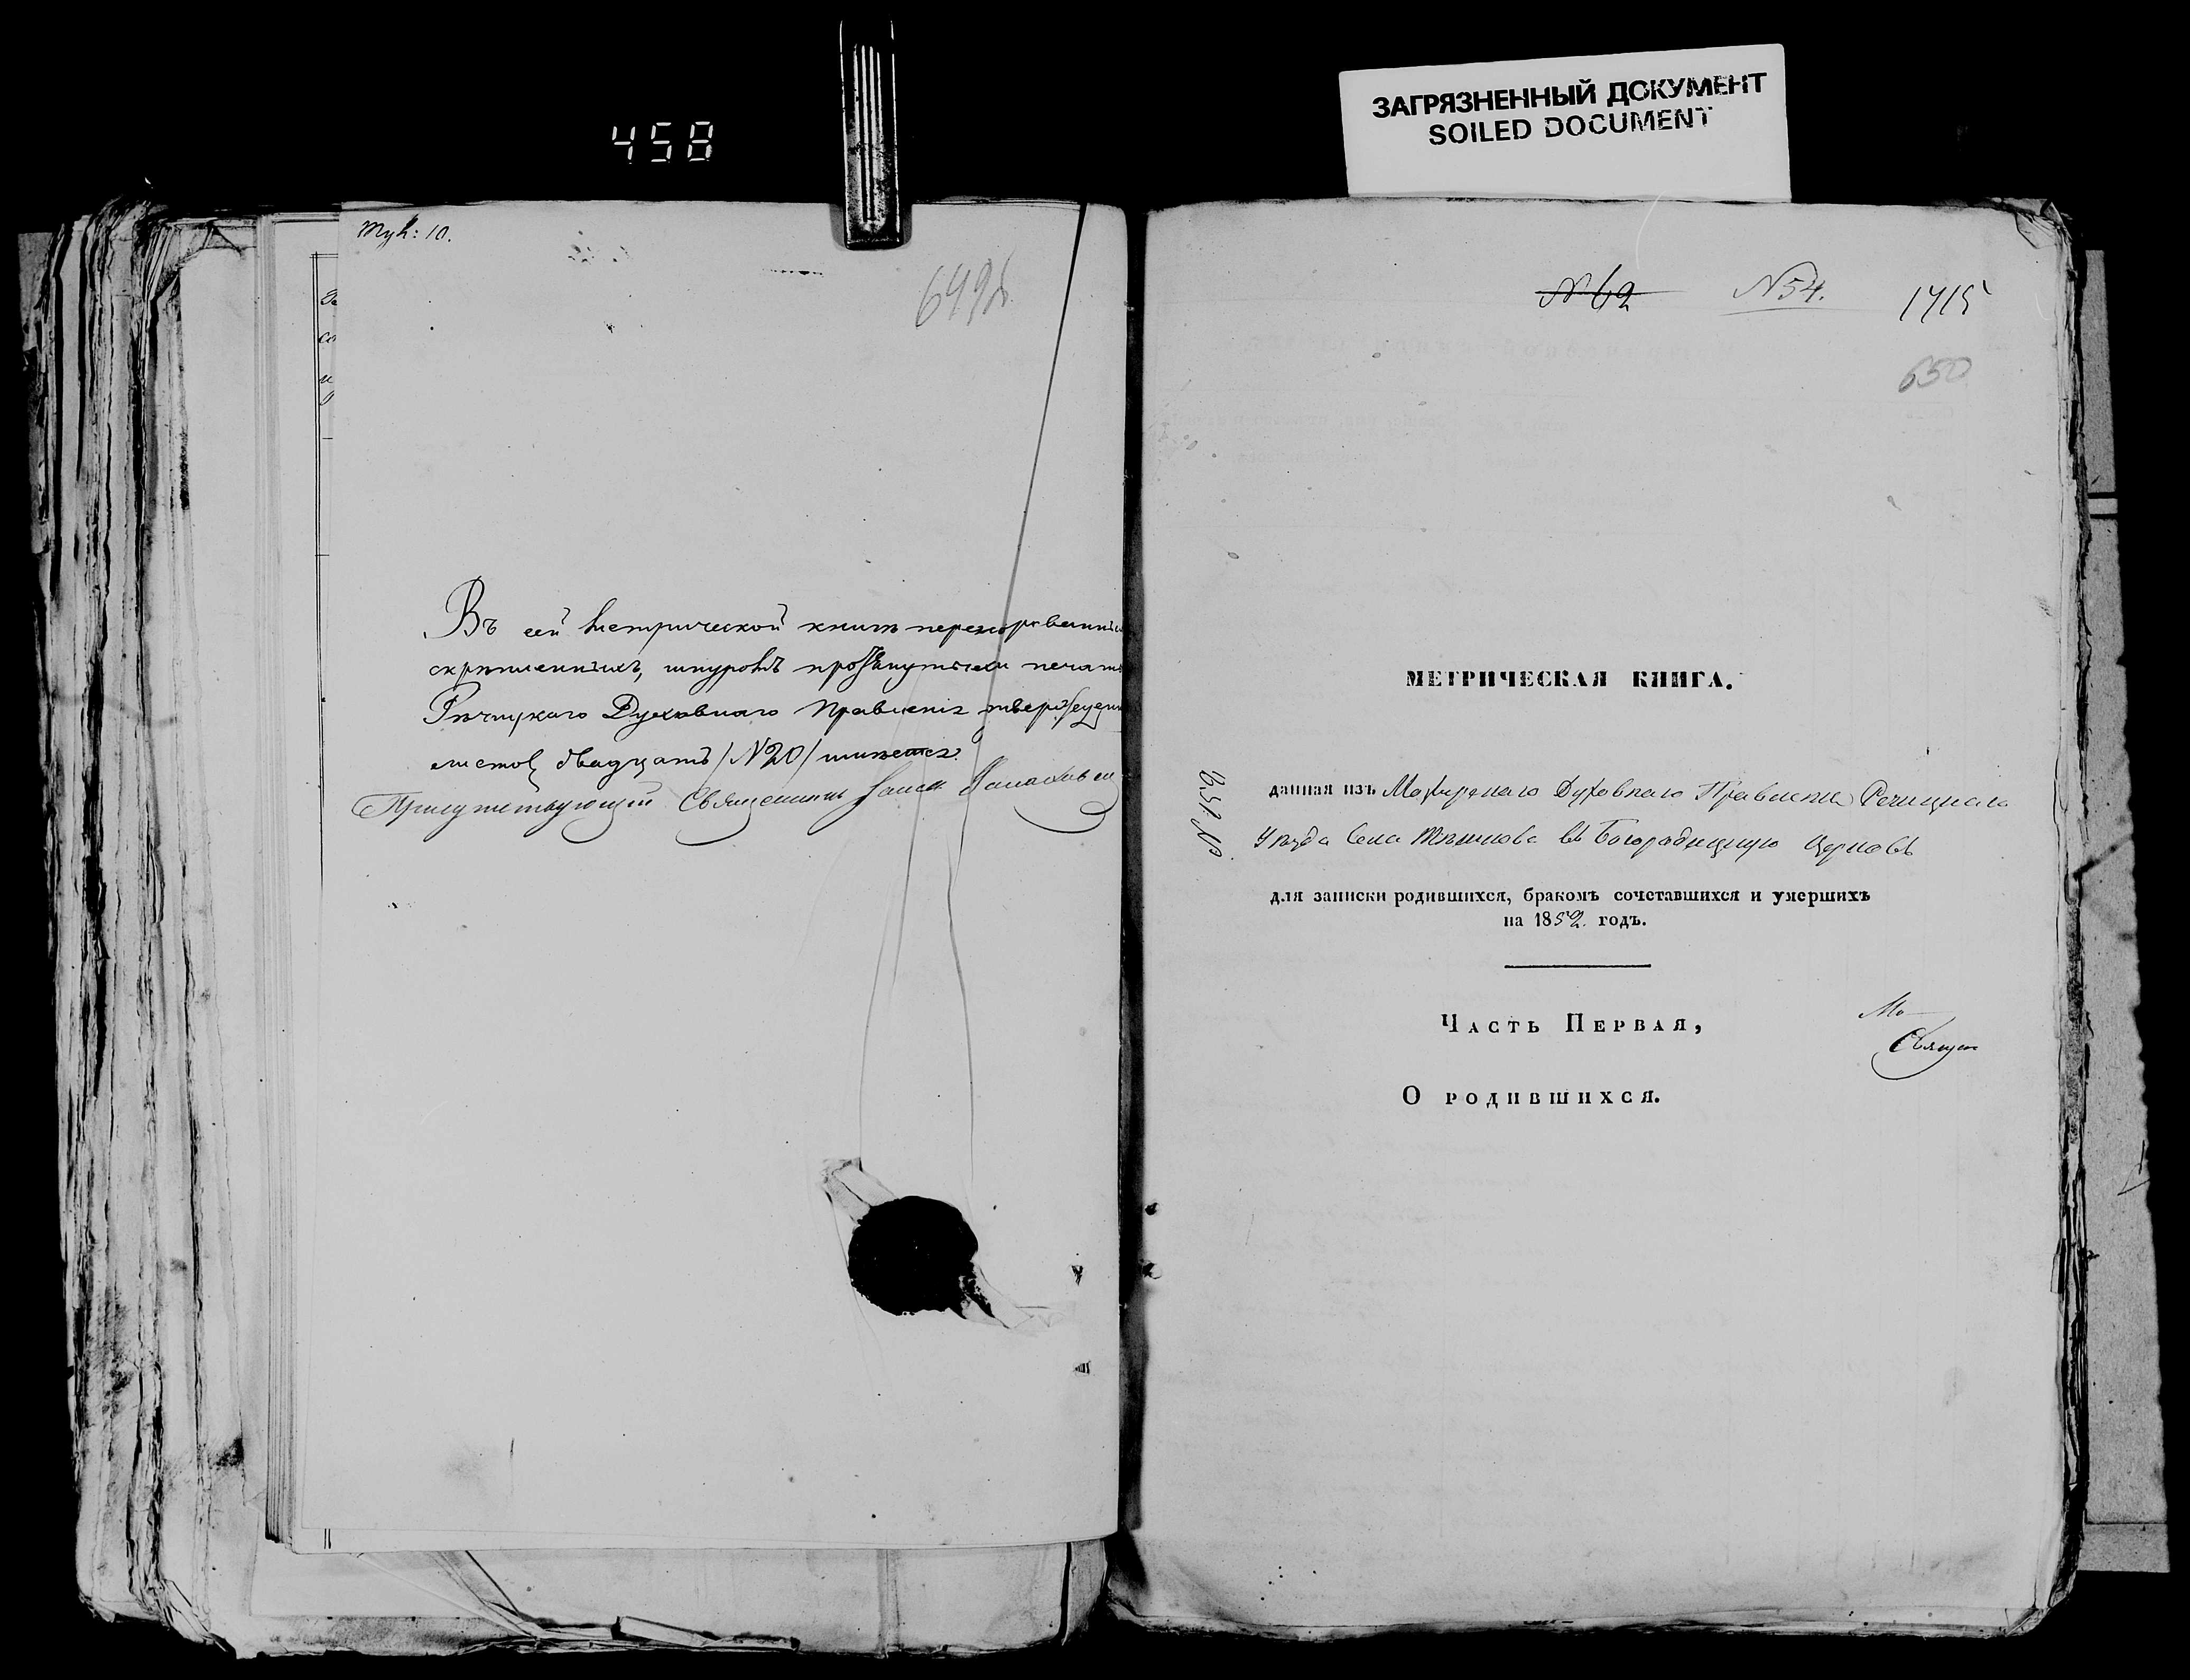 458
ЗАГРЯЗНЕННЫЙ ДОКУМЕНТ
SOILED DOCUMENT
10.
649
Въ сей метрической книгѣ
скрѣпленныхъ, шнуромъ печат
Рѣчицкаго Духовнаго Правленія
листовъ двадцать /N20/
Присутствующій Священникъ
N 62 N 54. 1715
650
МЕТРИЧЕСКАЯ КНИГА.
данная изъ Мозырскаго Духовнаго Правленія Речицкаго
Уѣзда Села въ Богородицкую Церковь
для записки родившихся, бракомъ сочетавшихся и умерших
на 1852. годъ.
ЧАСТЬ ПЕРВАЯ,
Мо
Священ
О РОДИВШИХСЯ.